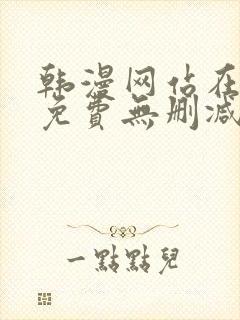 韩漫网佔在
免費無删减
一點點兒